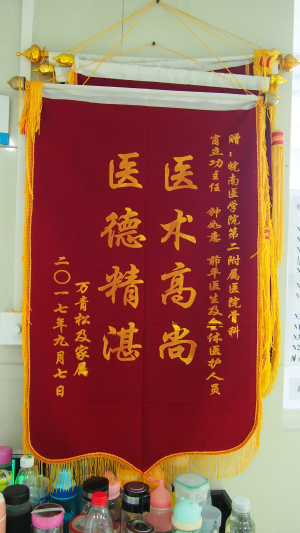 赠：皖南医学院第二附属医院骨科
肖立功主任 钟如意 平医生及全体医护人员
医术高尚
医德精湛
万青松及家属
二〇一七年九月七日